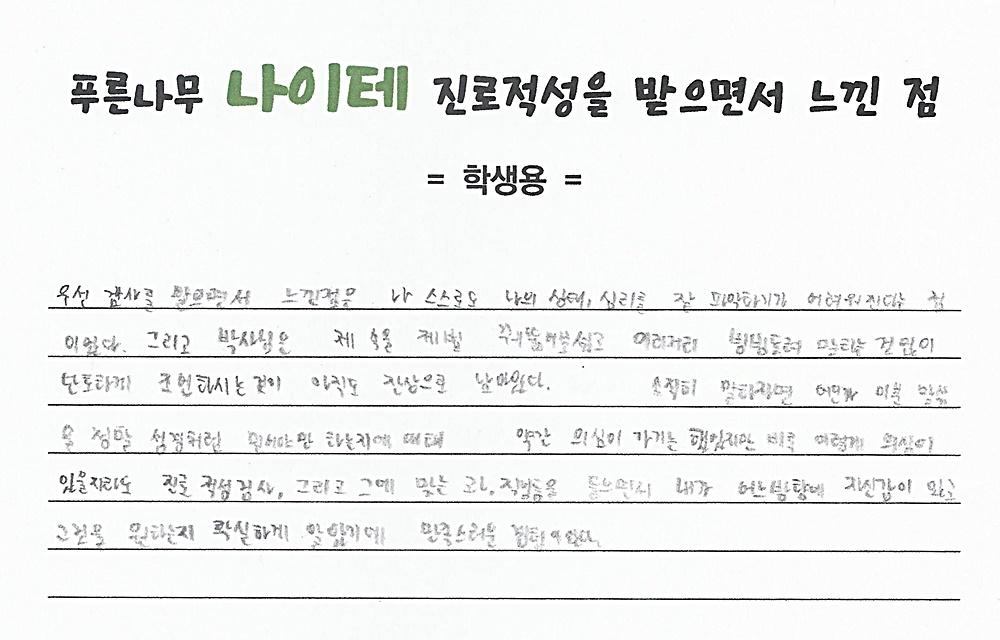 푸른나무 나이테 진로적성을 받으면서 느낀 점
= 학생용 =
우선 검사를 받으면서 느낀점은 나 스스로도 나의 상태, 심리를 잘 파악하기가 어려워진다는 점
이었다. 그리고 박사님은 제 속을 제법 꿰뚫어보셨고 이리저리 빙빙돌려 말하는 것 없이
단호하게 조언하시는 것이 아직도 잔상으로 남아있다. 솔직히 말하자면 이분 말씀
을 정말 성경처럼 믿어야만 하는지에 대해 약간 의심이 가기는 했었지만 비록 이렇게 의심이
있을지라도 진로 적성검사, 그리고 그에 맞는 과, 직업등을 들으면서 내가 어느방향에 자신감이 있고
그것을 원하는지 확실하게 알았기에 만족스러운